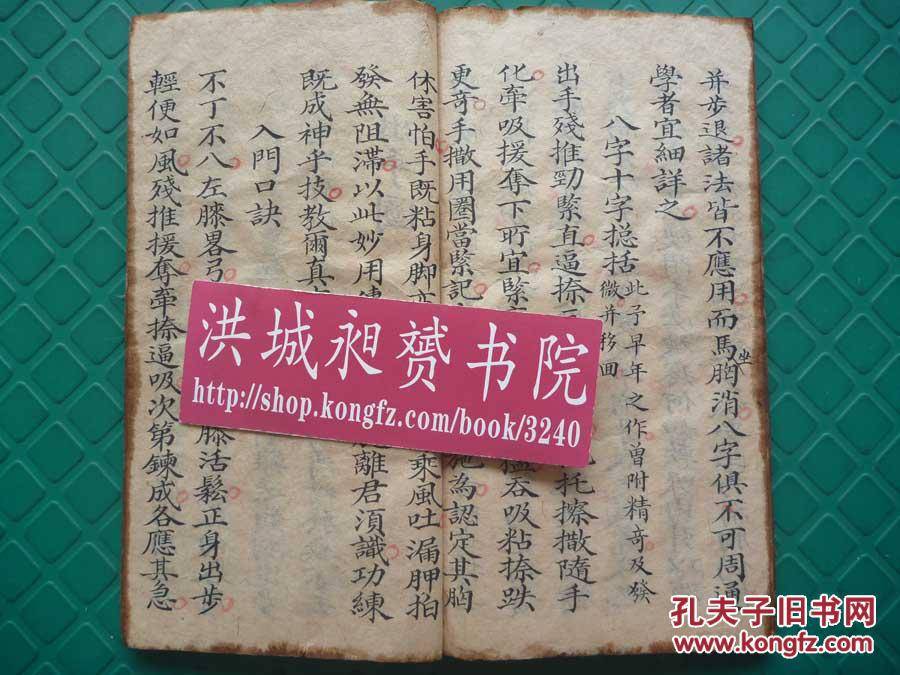 并步退諸法皆不應用而馬胸消八字俱不可周通
坐
學者宜細詳之
八字十字摠括 此予早年之作曾附精奇及發
微并移画
出手殘推勁緊直逼捺 托擦撒隨手
化牽吸援奪下貯宜緊 吞吸粘捺跌
更奇手撒用圈當緊記 施為認定其胸
休害怕手既粘身脚 乘風吐漏胛拍
發無阻滯以此妙用 離君須識功練
既成神乎技教爾真
入門口訣
不丁不八左膝畧弓 膝活鬆正身出步
輕便如風殘推援奪牽捺逼吸次第鍊成各應其急
洪城昶赟书院
http://shop.kongfz.com/book/3240
孔夫子旧书网
www.kongfz.com